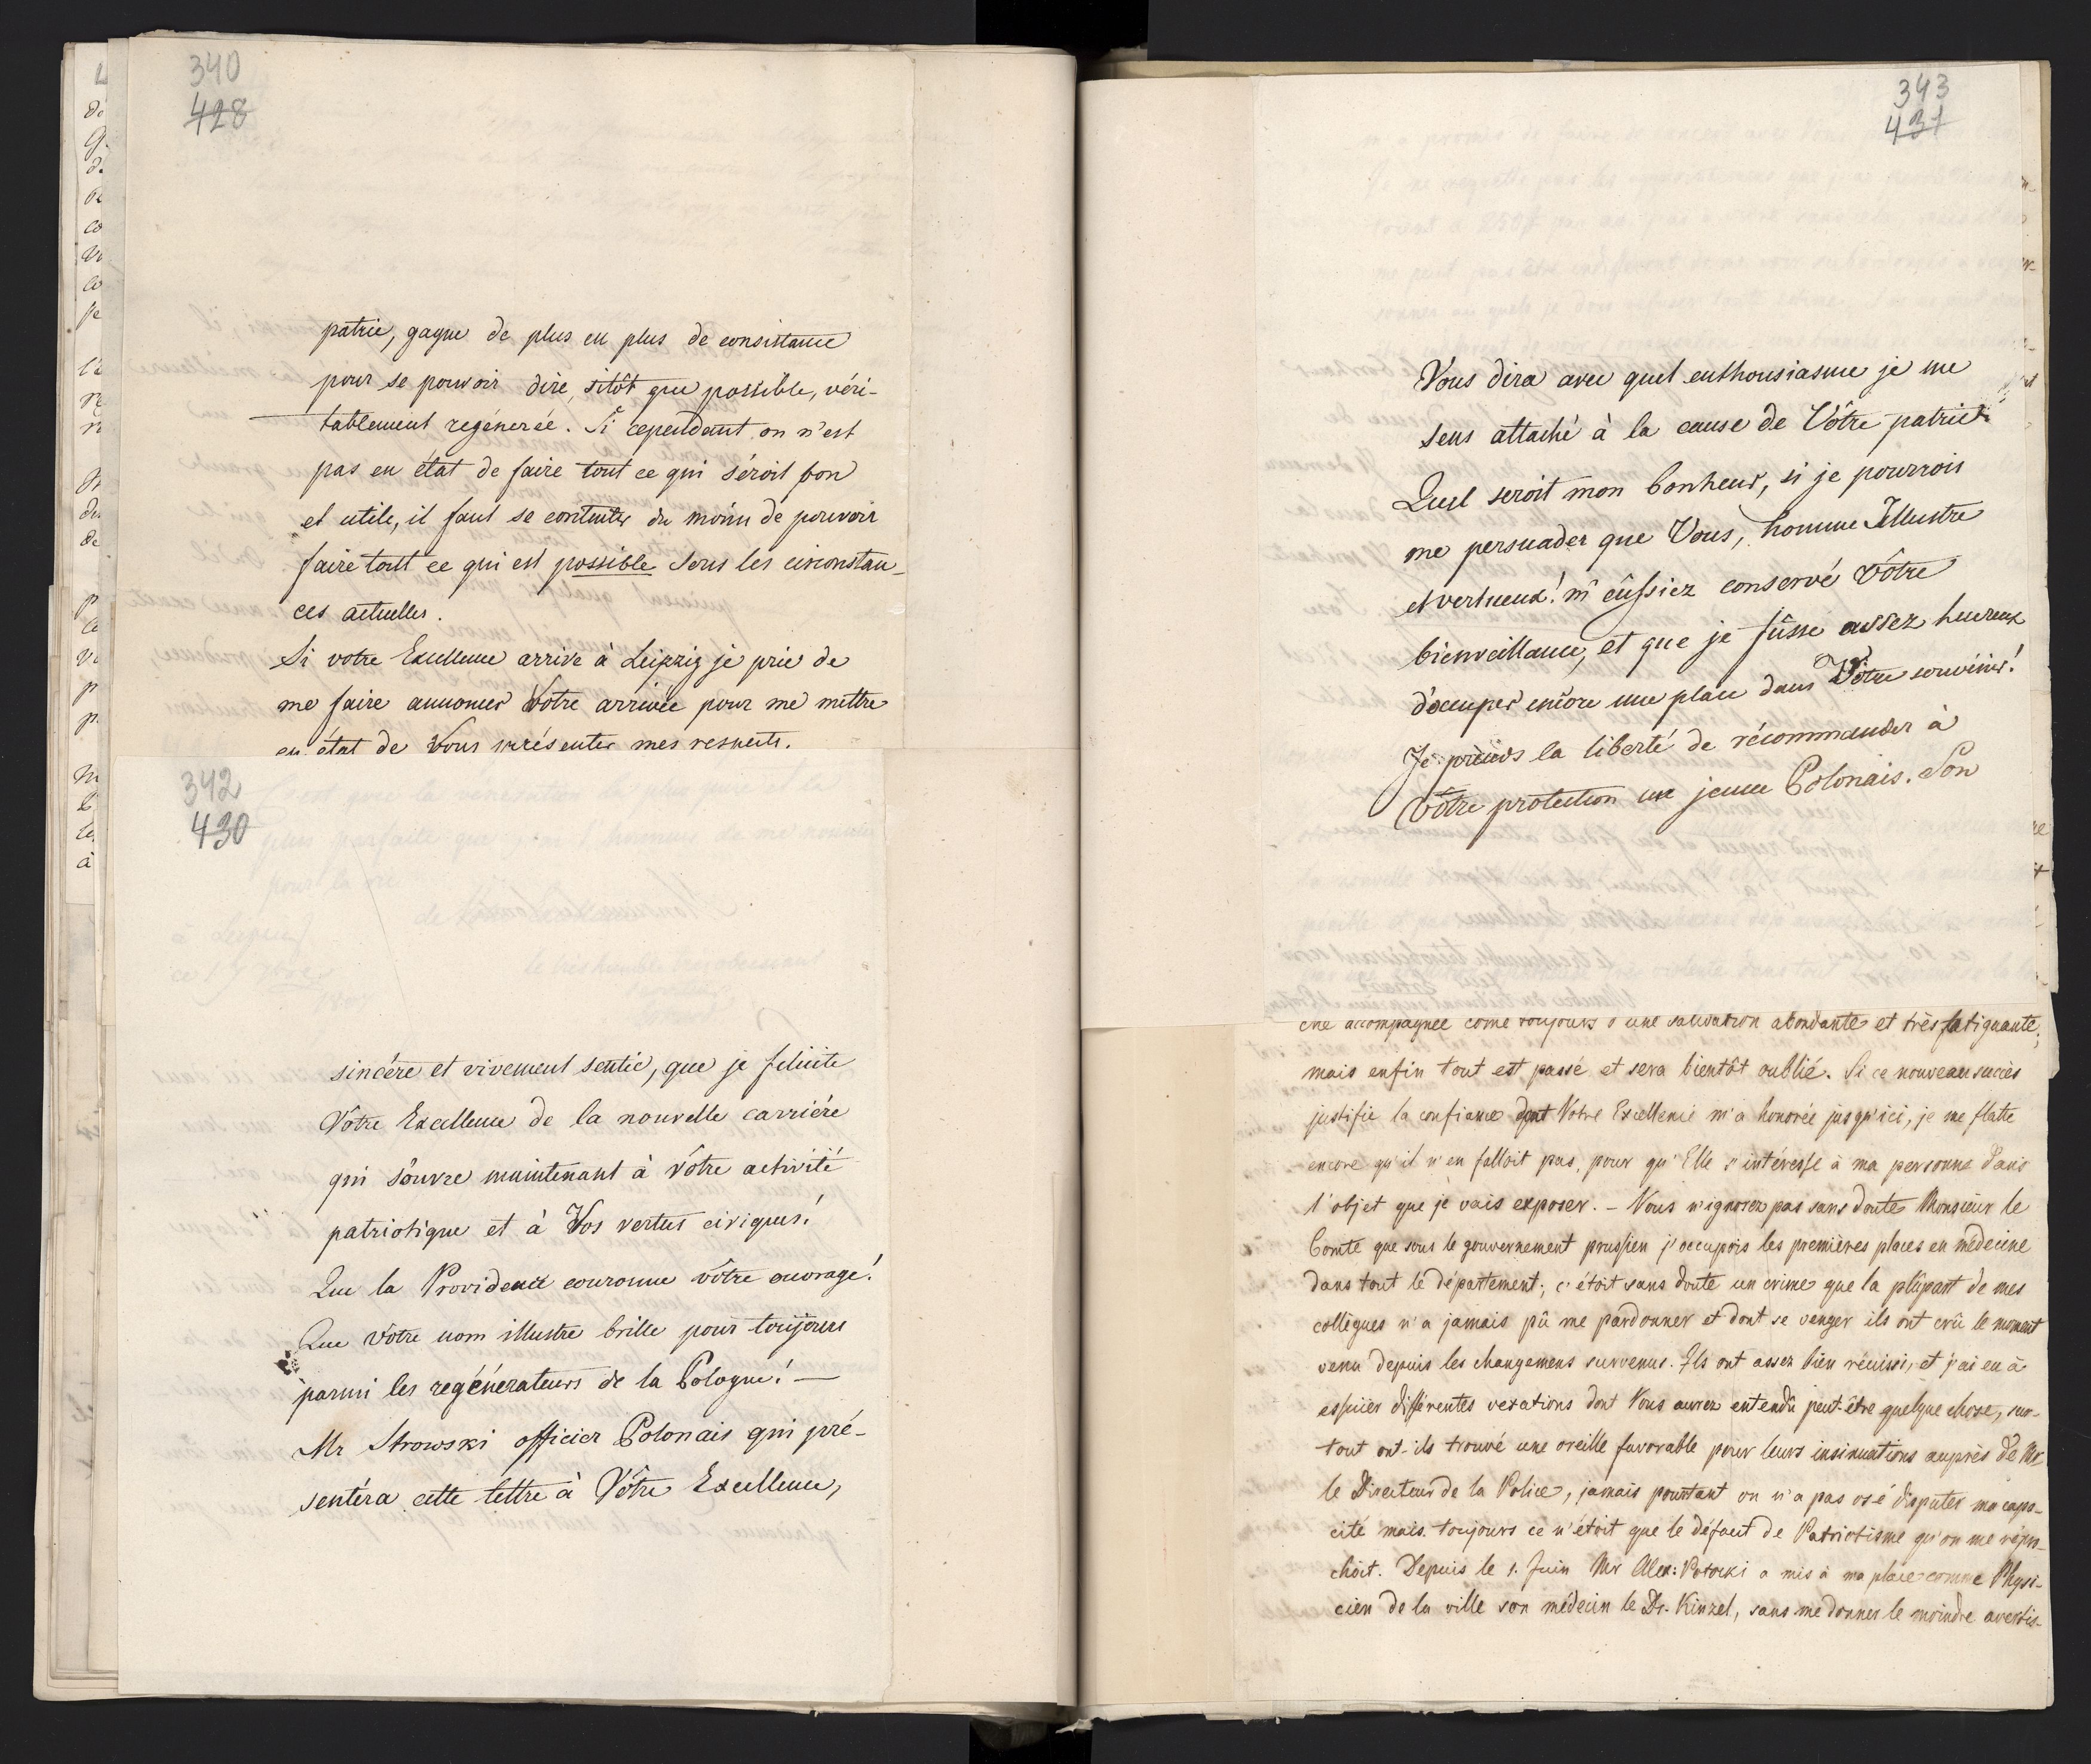 340
428
patrie, gagne de plus en plus de consistance
pour se pouvoir dire, sitôt que possible, véri-
tablement regénerée. Si cependant on n'est
pas en état de faire tout ce qui séroit bon
et utile, il faut se contenter du moins de pouvoir
faire tout ce qui est possible sous les circonstan-
ces actuelles.
Si votre Excellence arrive à Leipzig je prie de
me faire annoncer Votre arrivée pour me mettre
en état de Vous présenter mes respects.
342
430
sincére et vivement sentie, que je felicite
Vôtre Excellence de la nouvelle carriére
qui s'ouvre maintenant à vôtre activité
patriotique et à Vos vertus civiques!
Que la Providence couronne vôtre ouvrage!
Que vôtre nom illustre brille pour toujours
parmi les regénerateurs de la Pologne! —
Mr Strowski officier Polonais qui pré-
sentéra cette lettre à Vôtre Excellence,
343
431
Vous dira avec quel enthousiasme je me
sens attaché à la cause de Vôtre patrie.
Quel seroit mon bonheur, si je pourrois
me persuader que Vous, homme Illustre
et vertueux! m'eûssiez conservé vôtre
bienveillance, et que je fûsse assez heureux
d'occuper encore une place dans Vôtre souvenir!
Je prends la liberté de récommander à
Vôtre protection un jeune Polonais. Son
accompagnée come toujours d'une salivation abondante et très fatiguante;
mais enfin tout est passé et sera bientôt oublié. Si ce nouveau succès
justifie la confiance dont Votre Excellence m'a honorée jusqu'ici, je me flatte
encore qu'il n'en falloit pas, pour qu'Elle s'intéresse à ma personne dans
l'objet que je vais exposer. – Vous n'ignorez pas sans doute Monsieur le
Comte que sous le gouvernement prussien j'occupois les premières places en médecine
dans tout le département; c'étoit sans doute un crime que la plûpart de mes
collègues n'a jamais pû me pardonner et dont se venger ils ont crû le moment
venu depuis les changemens survenus. Ils ont assez bien réussi, et j'ai eu à
essuier différentes vexations dont Vous aurez entendû peut-être quelque chose, sur-
tout ont-ils trouvé une oreille favorable pour leurs insinuations auprès de Mr
le Directeur de la Police, jamais pourtant on n'a pas osé disputer ma capa-
cité mais toujours ce n'étoit que le défaut de Patriotisme qu'on me répro-
choit. Depuis le 1. Juin Mr Alex: Potocki a mis à ma place comme Physi-
cien de la ville son médecin le Dr. Kinzel, sans me donner le moindre avertis-